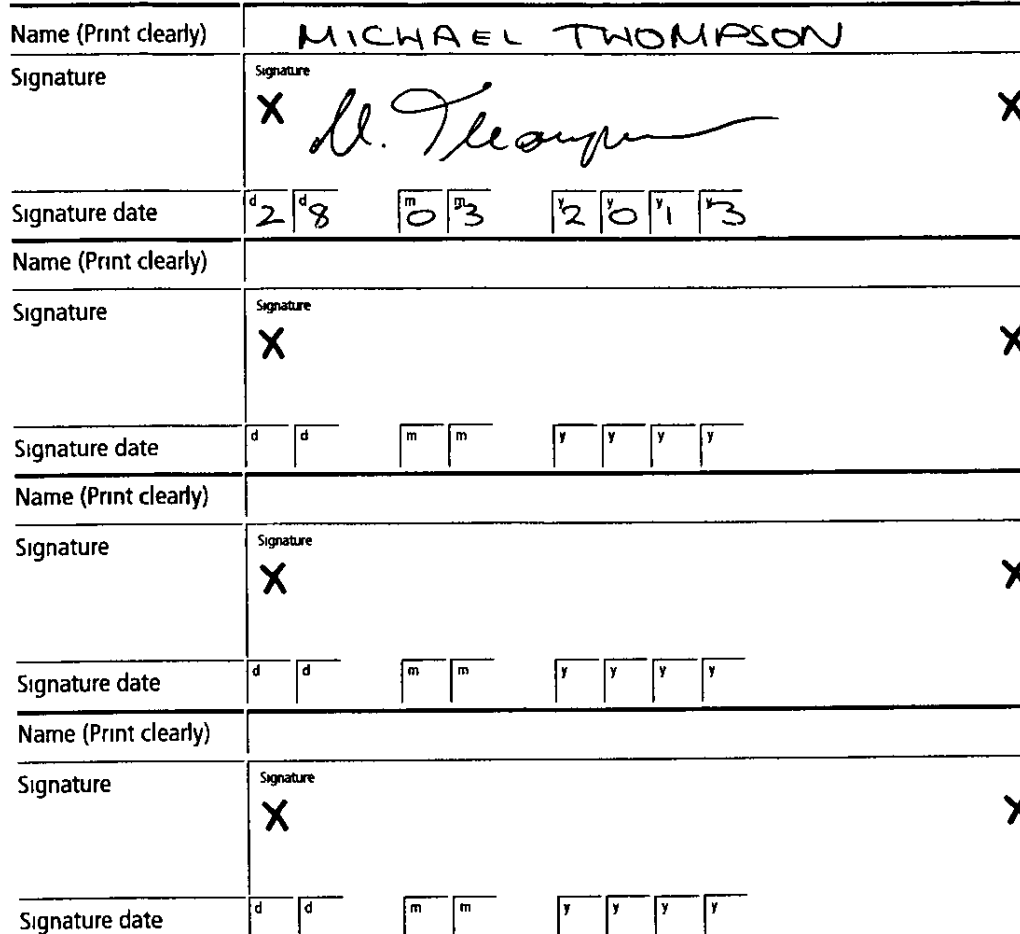 Name (Print clearly) MICHAEL THOMPSON
Signature Signature
X M. Thompson X
Signature date d2 d8 m0 m3 y2 y0 y1 y3
Name (Print clearly)
Signature Signature
X X
Signature date d d m m y y y y
Name (Print clearly)
Signature Signature
X X
Signature date d d m m y y y y
Name (Print clearly)
Signature Signature
X X
Signature date d d m m y y y y